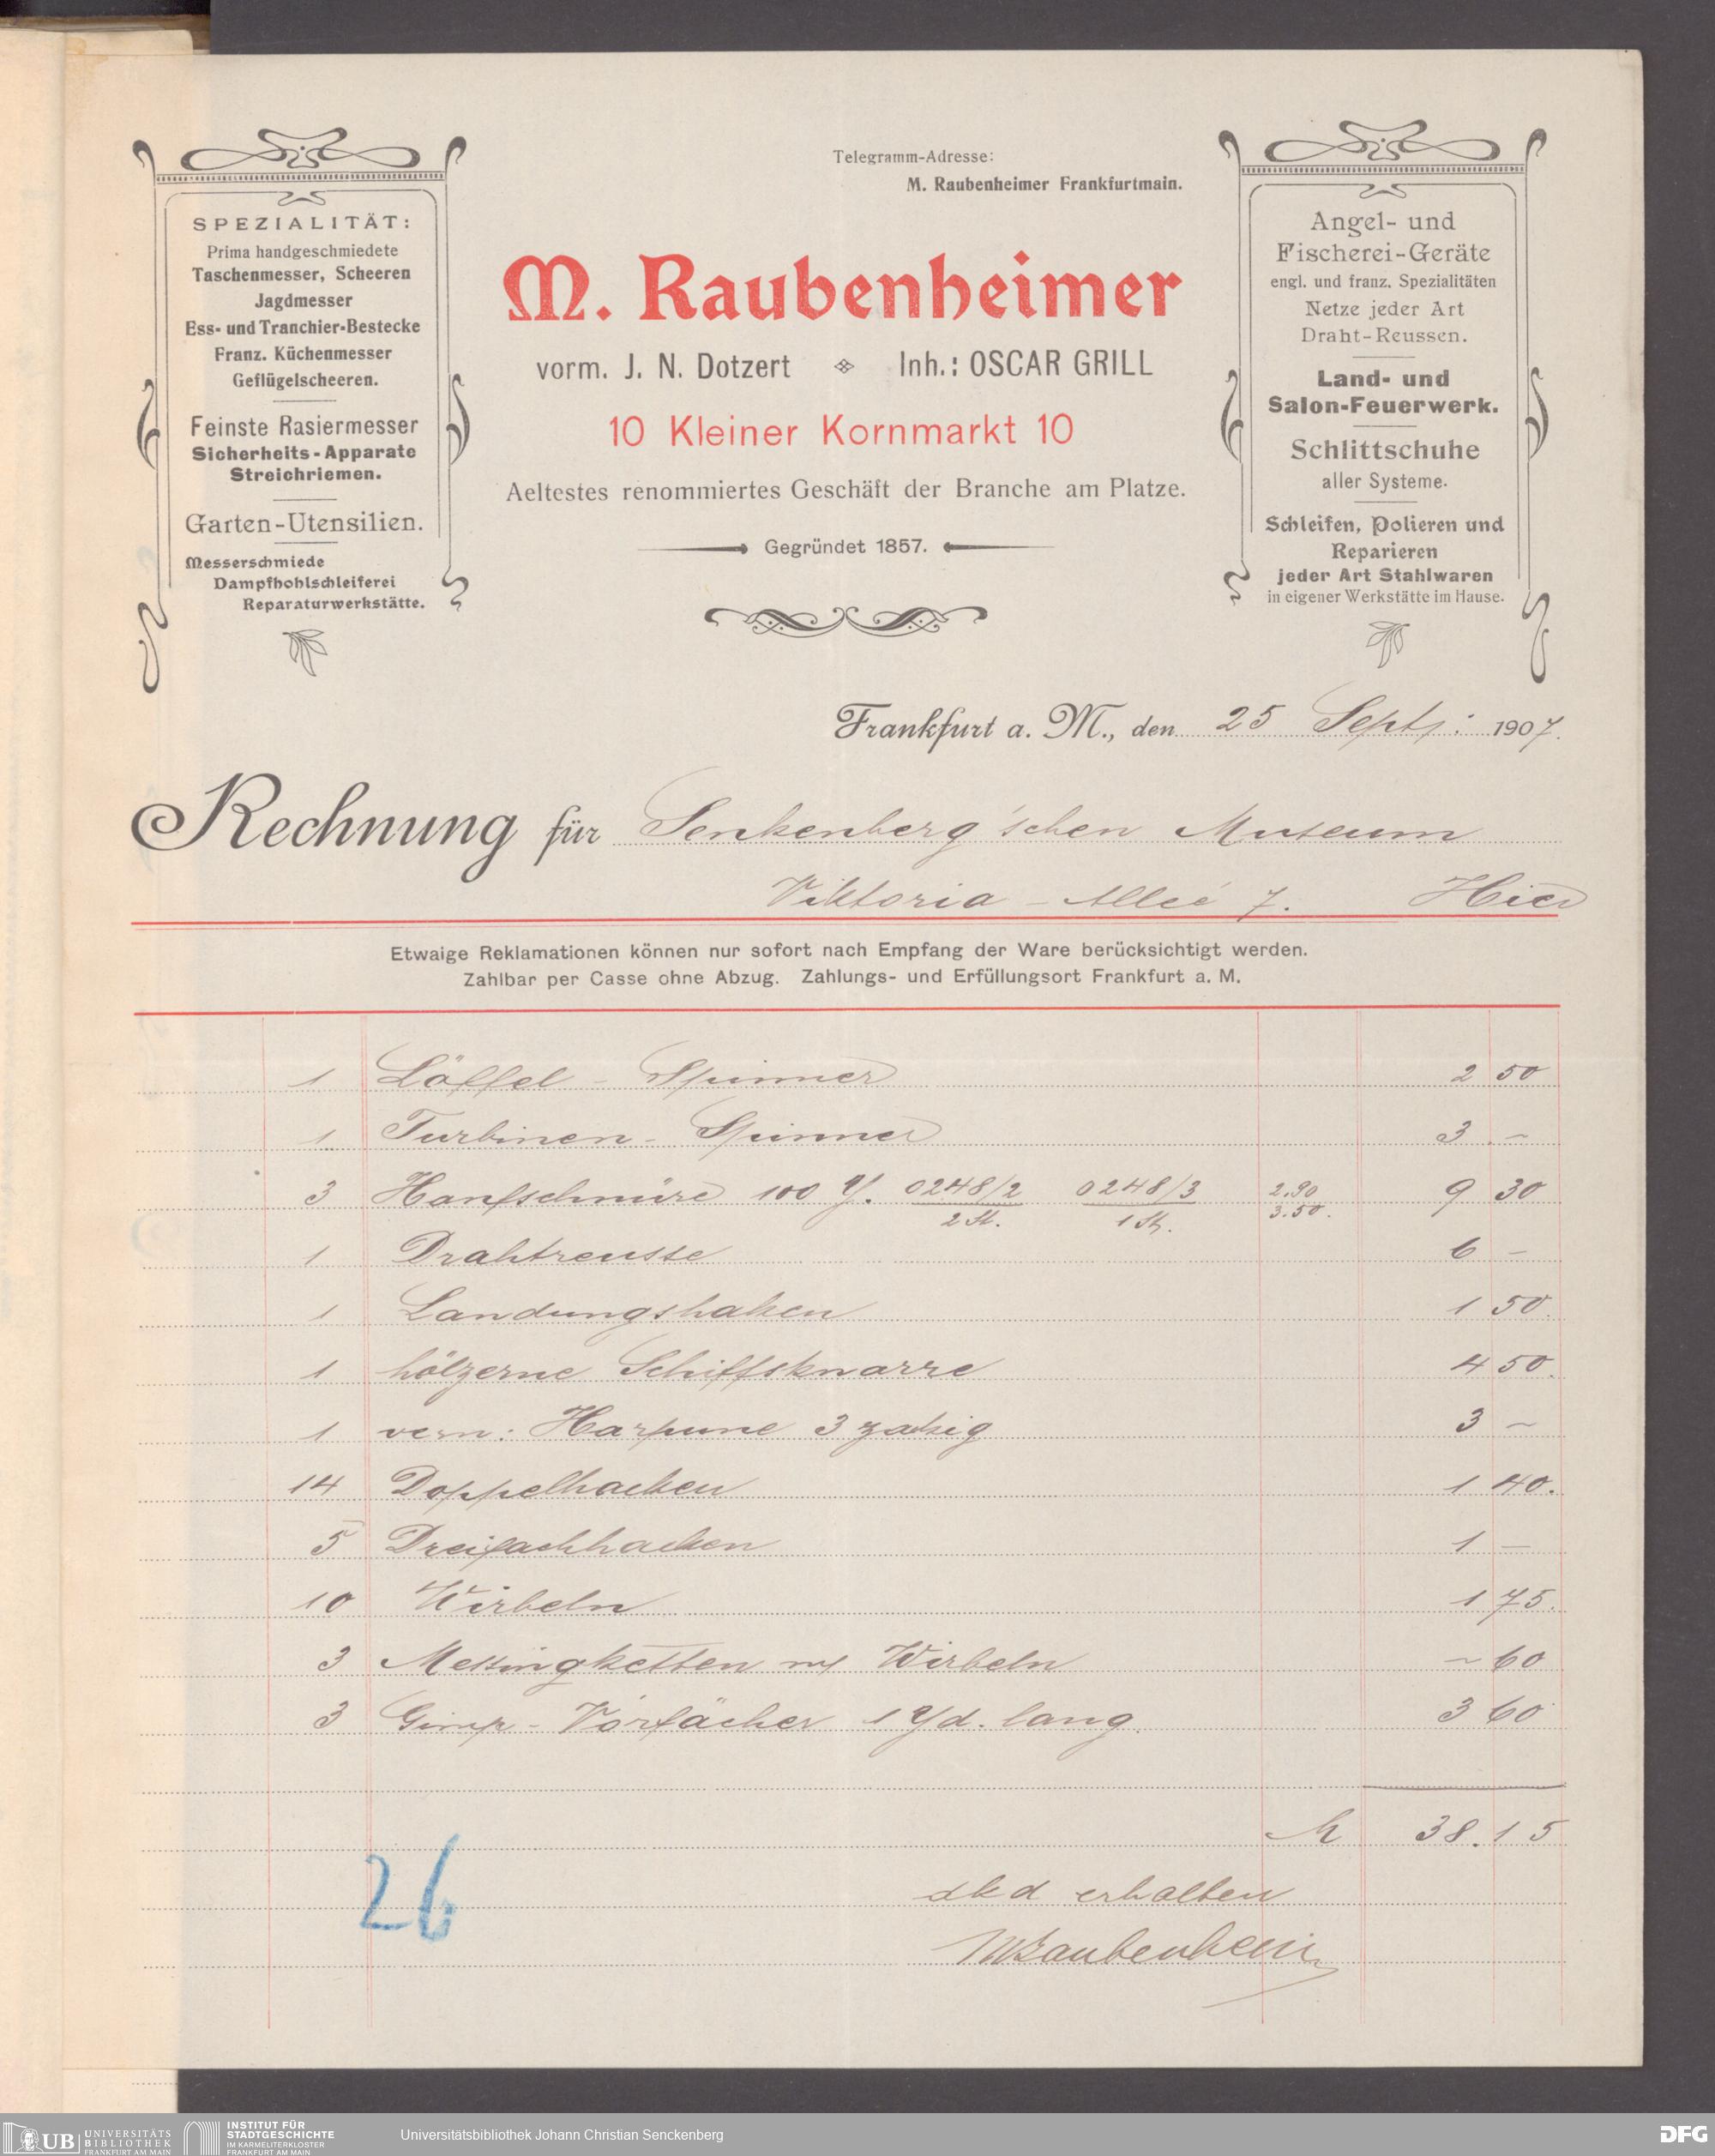 SPEZIALITÄT:
Prima handgeschmiedete
Taschenmesser, Scheeren
Jagdmesser
Ess- und Tranchier-Bestecke
Franz. Küchenmesser
Geflügelscheeren.
Feinste Rasiermesser
Sicherheits-Apparate
Streichriemen.
Garten-Utensilien.
Messerschmiede
Dampfhohlschleiferei
Reparaturwerkstätte.
Telegramm-Adresse:
M. Raubenheimer Frankfurtmain.
M. Raubenheimer
vorm. J. N. Dotzert Inh.: OSCAR GRILL
10 Kleiner Kornmarkt 10
Aeltestes renommiertes Geschäft der Branche am Platze.
Gegründet 1857.
Angel- und
Fischerei-Geräte
engl. und franz. Spezialitäten
Netze jeder Art
Draht-Reussen.
Land- und
Salon-Feuerwerk.
Schlittschuhe
aller Systeme.
Schleifen, Polieren und
Reparieren
jeder Art Stahlwaren
in eigener Werkstätte im Hause.
Frankfurt a. M., den 25 Septz: 1907.
Rechnung für Senkenberg'schen Museum
Viktoria-Alleé 7. Hier
Etwaige Reklamationen können nur sofort nach Empfang der Ware berücksichtigt werden.
Zahlbar per Casse ohne Abzug. Zahlungs- und Erfüllungsort Frankfurt a. M.
1 Löffel-Spinner 2 50
1 Turbinen-Spinner 3 –
3 Hanfschnüre 100 Y. 0248/2 0248/3 2.90 9 30
2 St. 1 St. 3.50.
1 Drahtreusse 6 –
1 Landungshaken 1 50.
1 hölzerne Schiffsknarre 4 50.
1 vern: Harpune 3 zakig 3 –
14 Doppelhacken 1 40.
5 Dreifachhacken 1 –
10 Wirbeln 1 75.
3 Messingketten m/ Wirbeln – 60
3 Gimp-Vorfächer 1 Yd. lang. 3 60
M 38.15
26
erhalten
MRaubenheim
UB UNIVERSITÄTS
BIBLIOTHEK
FRANKFURT AM MAIN
INSTITUT FÜR
STADTGESCHICHTE
IM KARMELITERKLOSTER
FRANKFURT AM MAIN
Universitätsbibliothek Johann Christian Senckenberg
DFG